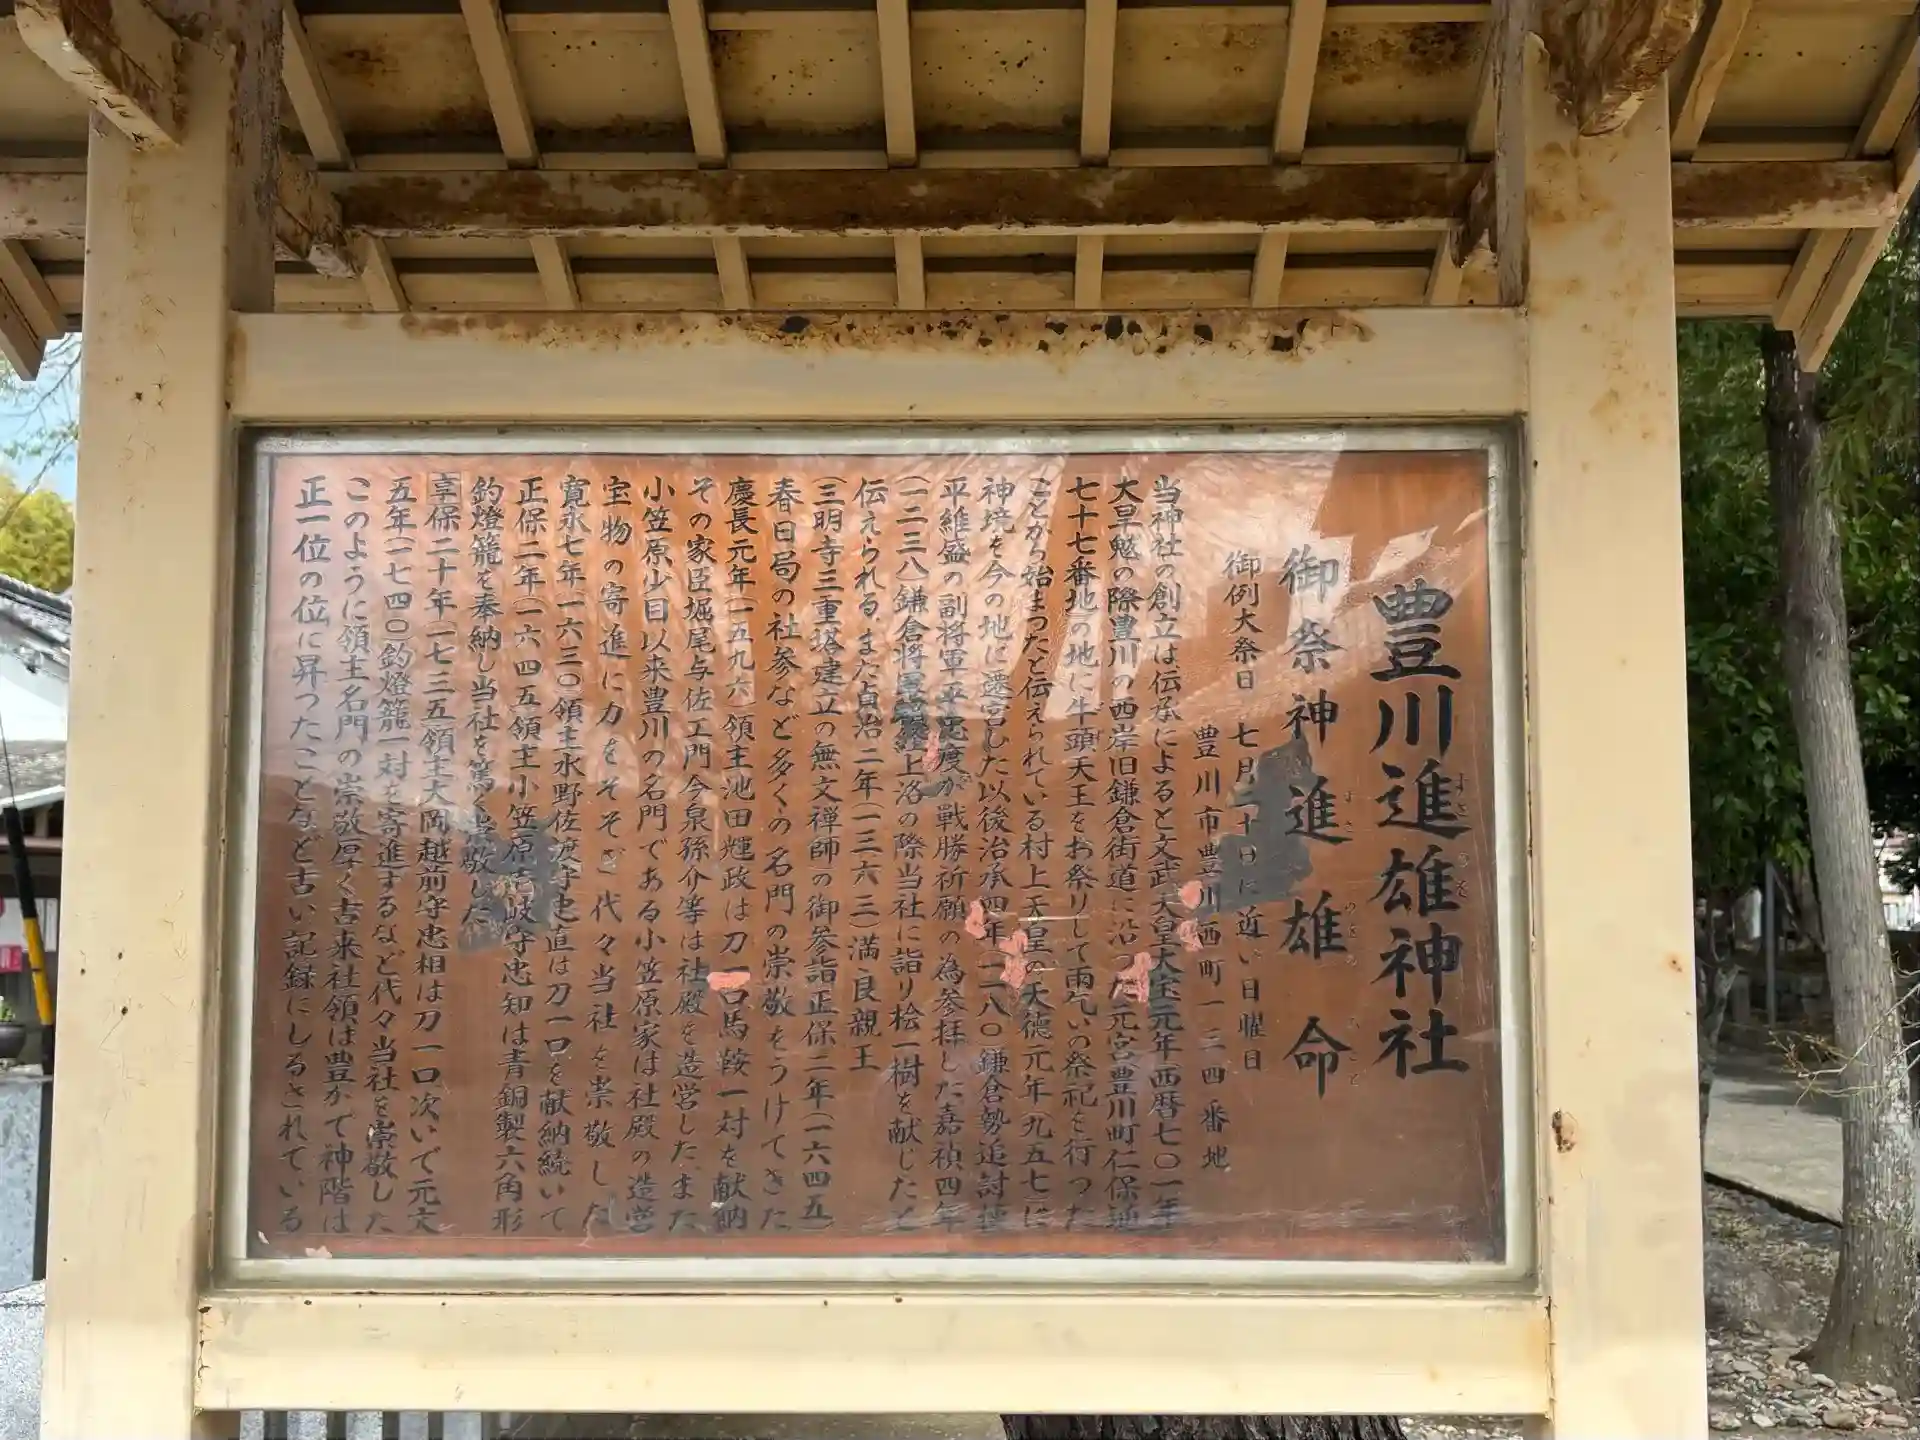 豊川進雄神社
すさのを
御祭神 進雄命
すさのをのみこと
御例大祭日 七月二十日に近い日曜日
豊川市豊川西町一三四番地
当神社の創立は伝承によると文武天皇大宝元年(西暦七〇一年
大旱魃の際豊川の西岸旧鎌倉街道に沿った元宮豊川町仁保通
七十七番地)の地に牛頭天王をお祭りして雨乞いの祭祀を行った
ことから始まったと伝えられている村上天皇の天徳元年(九五七)に
神境を今の地に遷宮した以後治承四年(一一八〇)鎌倉勢追討
平維盛の副将軍平忠度が戦勝祈願の為参拝した嘉禎四年
(一二三八)鎌倉将軍頼経上洛の際当社に詣り桧一樹を献じたと
伝えられる、また貞治二年(一三六三)満良親王
(三明寺三重塔建立の無文禅師の御参詣正保二年(一六四五)
春日局の社参など多くの名門の崇敬をうけてきた
慶長元年(一五九六)領主池田輝政は刀一口馬鞍一対を献納
その家臣堀尾与佐エ門今泉孫介等は社殿を造営した、また
小笠原少目以来豊川の名門である小笠原家は社殿の造営
宝物の寄進に力をそそぎ代々当社を崇敬した
寛永七年(一六三〇)領主水野佐渡守忠直は刀一口を献納続いて
正保二年(一六四五)領主小笠原壱岐守忠知は青銅製六角形
釣燈籠を奉納し当社を篤く崇敬した
享保二十年(一七三五)領主大岡越前守忠相は刀一口次いで元文
五年(一七四〇)釣燈籠一対を寄進するなど代々当社を崇敬した
このように領主名門の崇敬厚く古来社領は豊かで神階は
正一位の位に昇ったことなど古い記録にしるされている